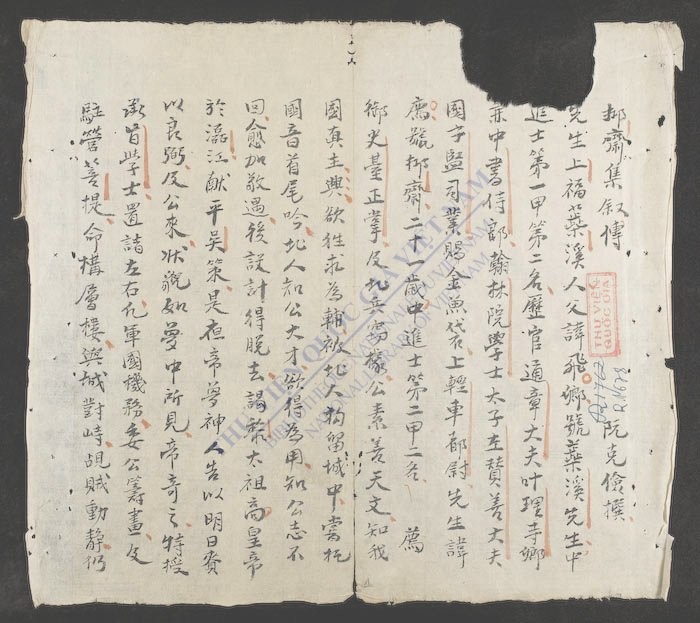 抑齋集叙傳 阮克儉撰
先生上福蕊溪人父諱飛卿號蕊溪先生中
進士第一甲第二名歷官通章大夫叶理寺卿
兼中書侍郎翰林院學士太子左贊善大夫
國子監司業賜金魚袋上輕車都尉先生諱
廌號抑齋二十一歲中進士第二甲二名 薦
御史臺正掌及北兵窩公素善天文知我
國真主興欲往求為輔被北人拘留城中嘗托
國音首尾吟北人知公大才欲得為用知公志不
回愈加敬遇後設計得脫去謁我太祖高皇帝
於瀘江猷平吳策是夜帝夢神人告以明日賚
以良弼及公來狀貌如夢中所見帝奇之特授
承旨學士置諸左右凡軍國機務委公籌畫及
駐營菩提命構層樓與城對峙覘賊動靜仍
THƯ VIỆN
QUỐC GIA
THƯ VIỆN QUỐC GIA VIỆT NAM
NATIONAL LIBRARY OF VIETNAM